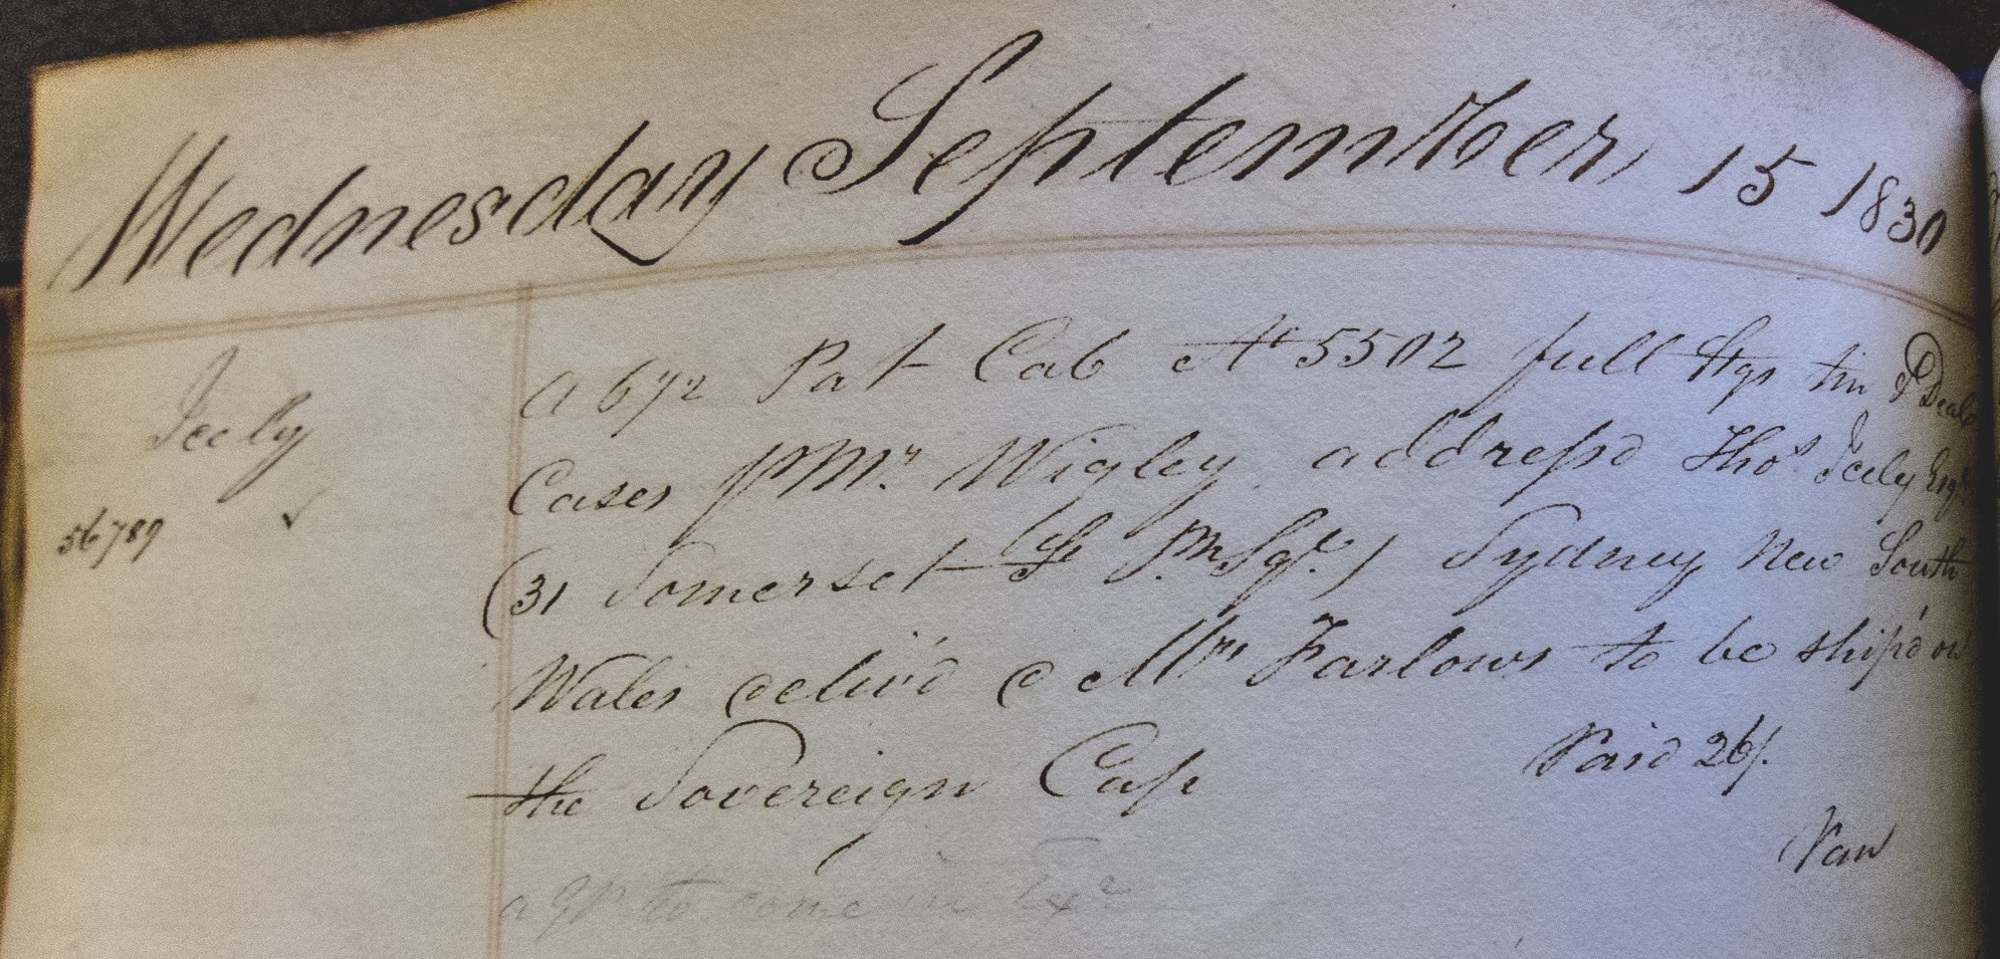 Wednesday September 15 1830
Icely
56789 ✓
A 672 Pat Cab No 5502 full Stgs tin & Deal
Cases p Mr. Wigley addressd Thos Icely Esqr
(31 Somerset St P.m Sqe.) Sydney New South
Wales deliv'd @ Mrs Farlows to be ship'd on
the Sovereign Cap
Paid 26/.
Van
a GP to come in Exe